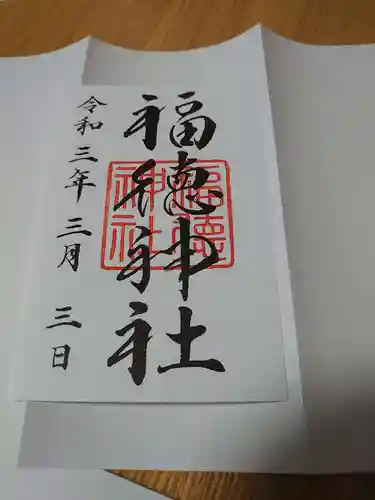 福徳神社
福徳神社
令和三年三月三日